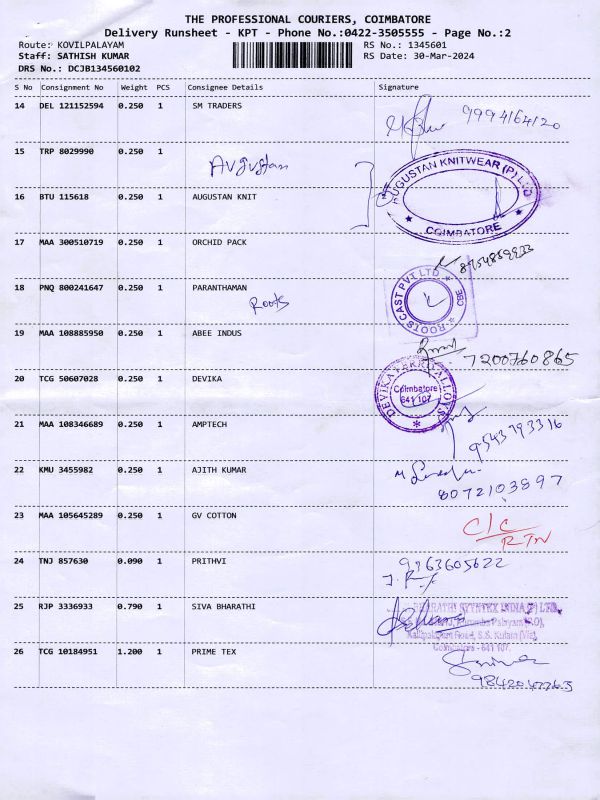 THE PROFESSIONAL COURIERS, COIMBATORE
Delivery Runsheet - KPT - Phone No.:0422-3505555 - Page No.:2
Route: KOVILPALAYAM RS No.: 1345601
Staff: SATHISH KUMAR RS Date: 30-Mar-2024
DRS No.: DCJB134560102
S No Consignment No Weight PCS Consignee Details Signature
14 DEL 121152594 0.250 1 SM TRADERS
9994164120
15 TRP 8029990 0.250 1
Augustan
AUGUSTAN KNITWEAR (P) LTD
COIMBATORE
16 BTU 115618 0.250 1 AUGUSTAN KNIT
17 MAA 300510719 0.250 1 ORCHID PACK
18 PNQ 800241647 0.250 1 PARANTHAMAN
Roots
ROOTS CAST PVT LTD
CBE
19 MAA 108885950 0.250 1 ABEE INDUS
7200760865
20 TCG 50607028 0.250 1 DEVIKA
DEVIKA
ALLOYS
Coimbatore
641 107
21 MAA 108346689 0.250 1 AMPTECH
9543793316
22 KMU 3455982 0.250 1 AJITH KUMAR
8072103897
23 MAA 105645289 0.250 1 GV COTTON
C/C
RTN
24 TNJ 857630 0.090 1 PRITHVI
9763605622
25 RJP 3336933 0.790 1 SIVA BHARATHI
BHARATHI SYNTEX INDIA (P) LTD.,
Kallipalayam Road, S.S. Kulam (Via),
Coimbatore - 641 107.
26 TCG 10184951 1.200 1 PRIME TEX